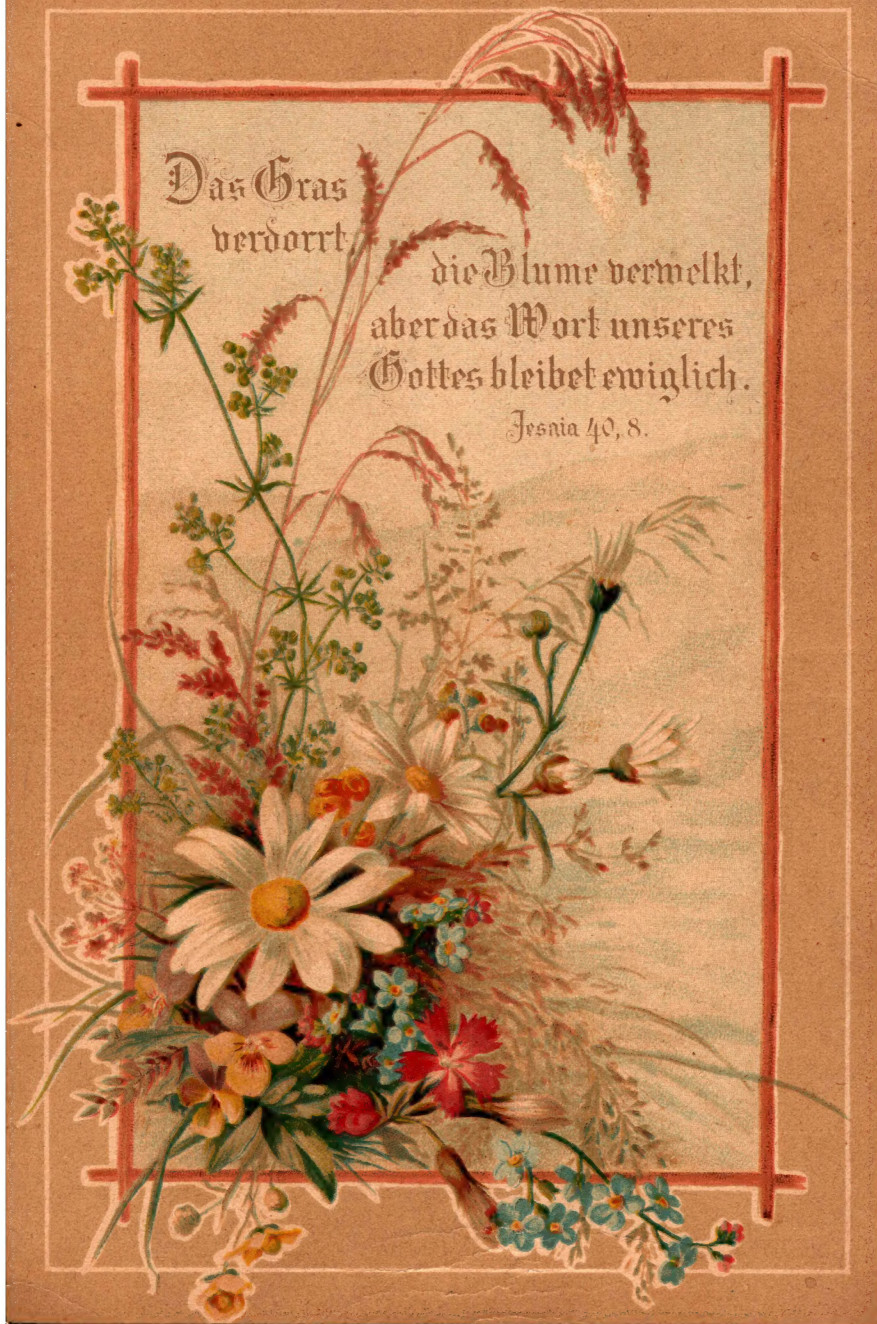 Das Gras
verdorrt,
die Blume verwelkt,
aber das Wort unseres
Gottes bleibet ewiglich.
Jesaia 40, 8.